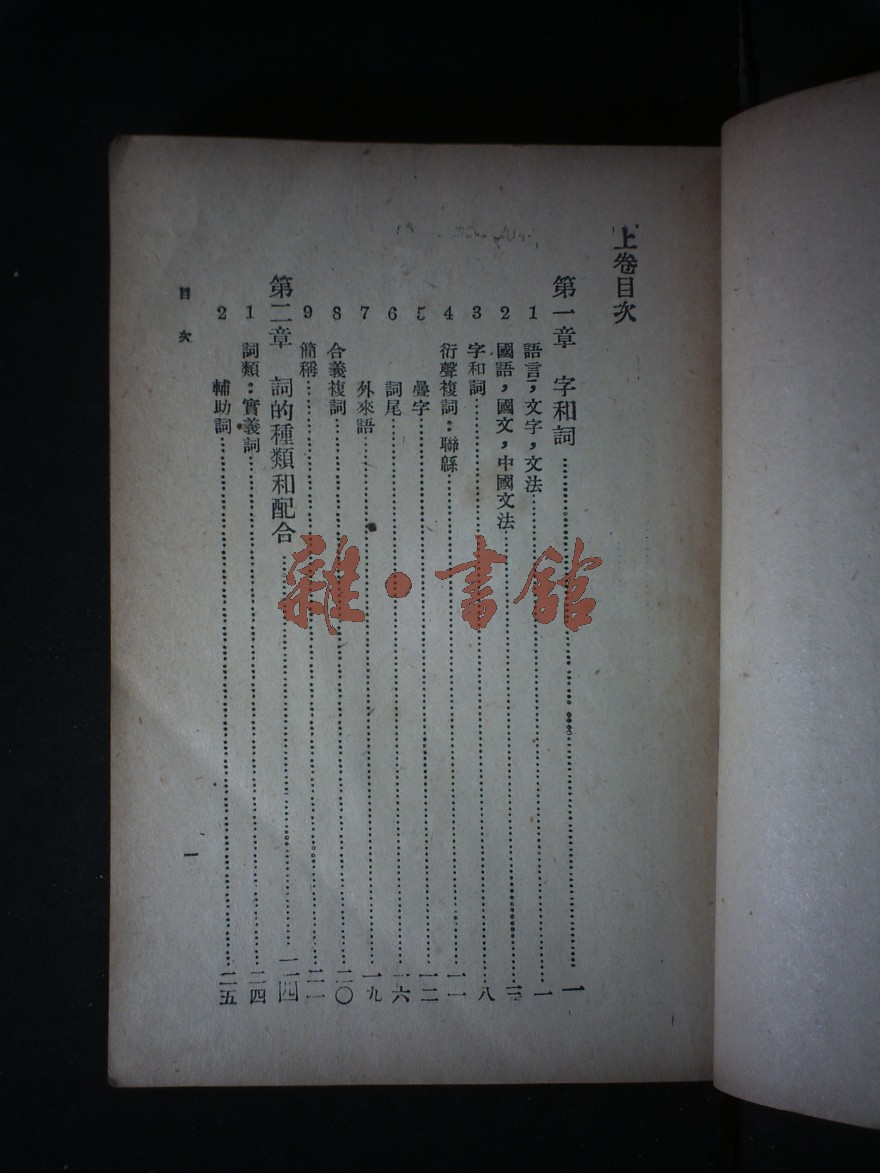 上卷目次
第一章 字和詞……一
1 語言，文字，文法……一
2 國語，國文，中國文法……三
3 字和詞……八
4 衍聲複詞：聯緜……一一
5 疊字……一二
6 詞尾……一六
7 外來語……一九
8 合義複詞……二〇
9 簡稱……二一
第二章 詞的種類和配合……二四
1 詞類：實義詞……二四
2 輔助詞……二五
目次
一
雜·書館